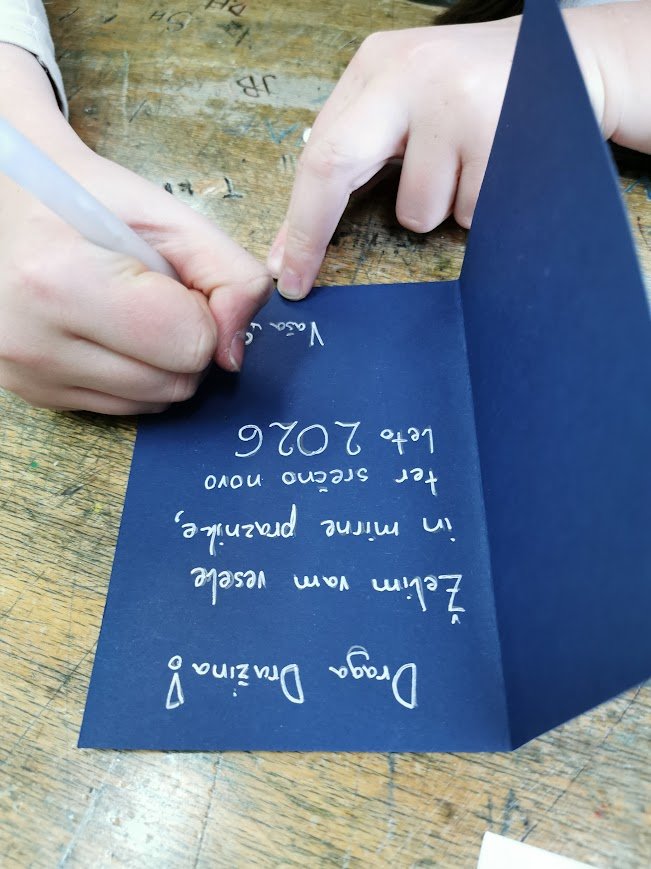 Draga Družina!
Želim vam vesele
in mirne praznike,
ter srečno novo
leto 2026
Vaša
JB